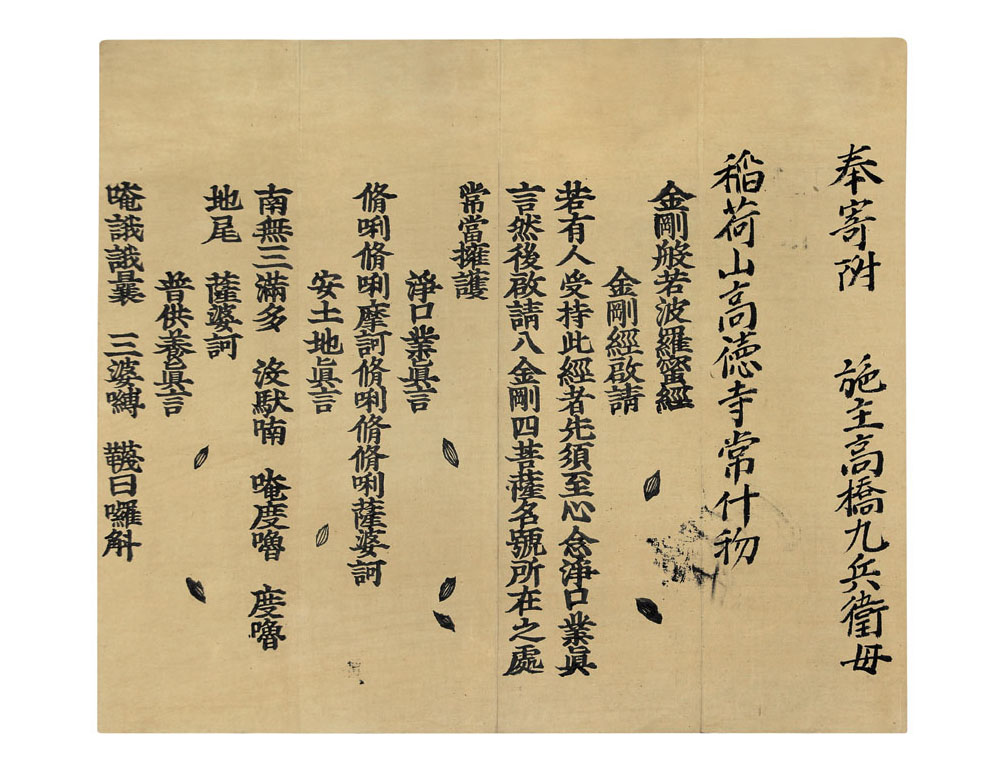 奉寄附　施主高橋九兵衛母
稲荷山高徳寺常什物
金剛般若波羅蜜經
金剛經啟請
若有人受持此經者先須至心念淨口業眞
言然後啟請八金剛四菩薩名號所在之處
常當擁護
淨口業眞言
脩唎脩唎摩訶脩唎脩脩唎薩婆訶
安土地眞言
南無三滿多　沒馱喃　唵度嚕　度嚕
地尾　薩婆訶
普供養眞言
唵誐誐曩　三婆嚩　韈日囉斛